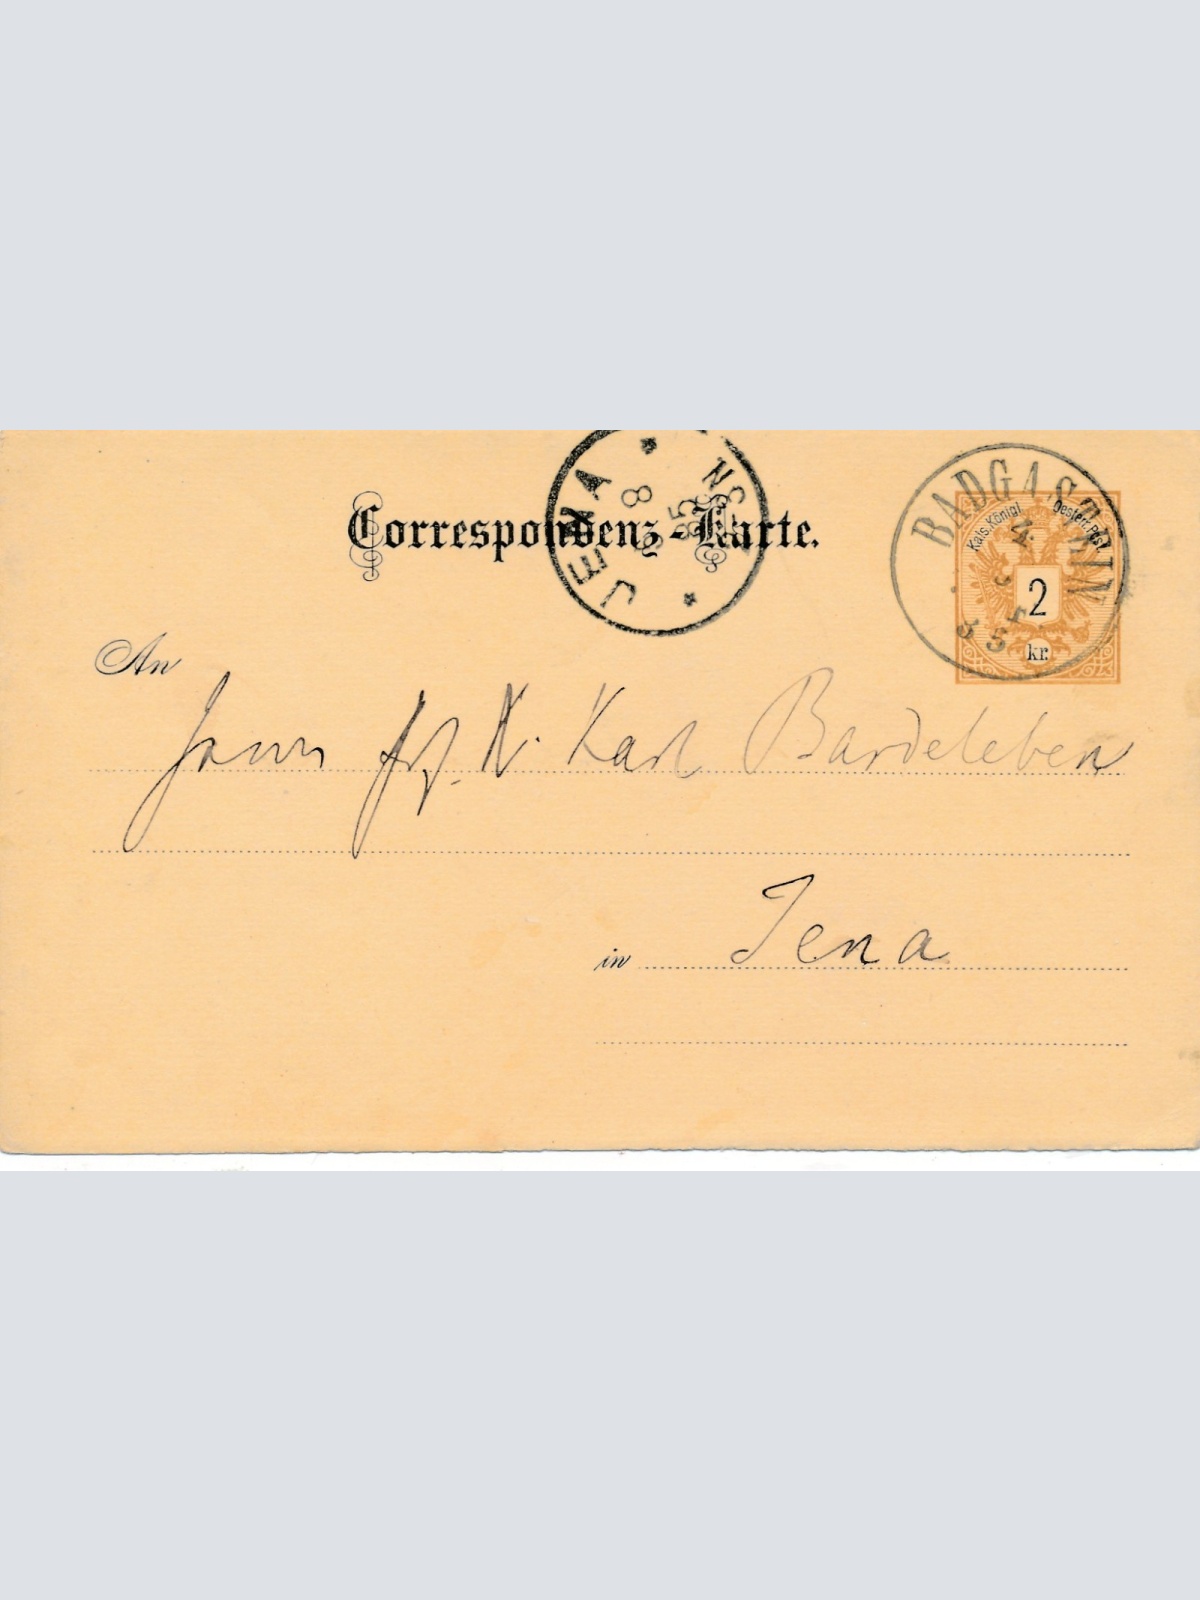 Correspondenz-Karte.
JENA
8 9 85
NS
BADGASTEIN
4
Kais. Königl. Oesterr. Post.
2
kr.
An
Herrn Prf. Dr. Karl Bardeleben
in Jena